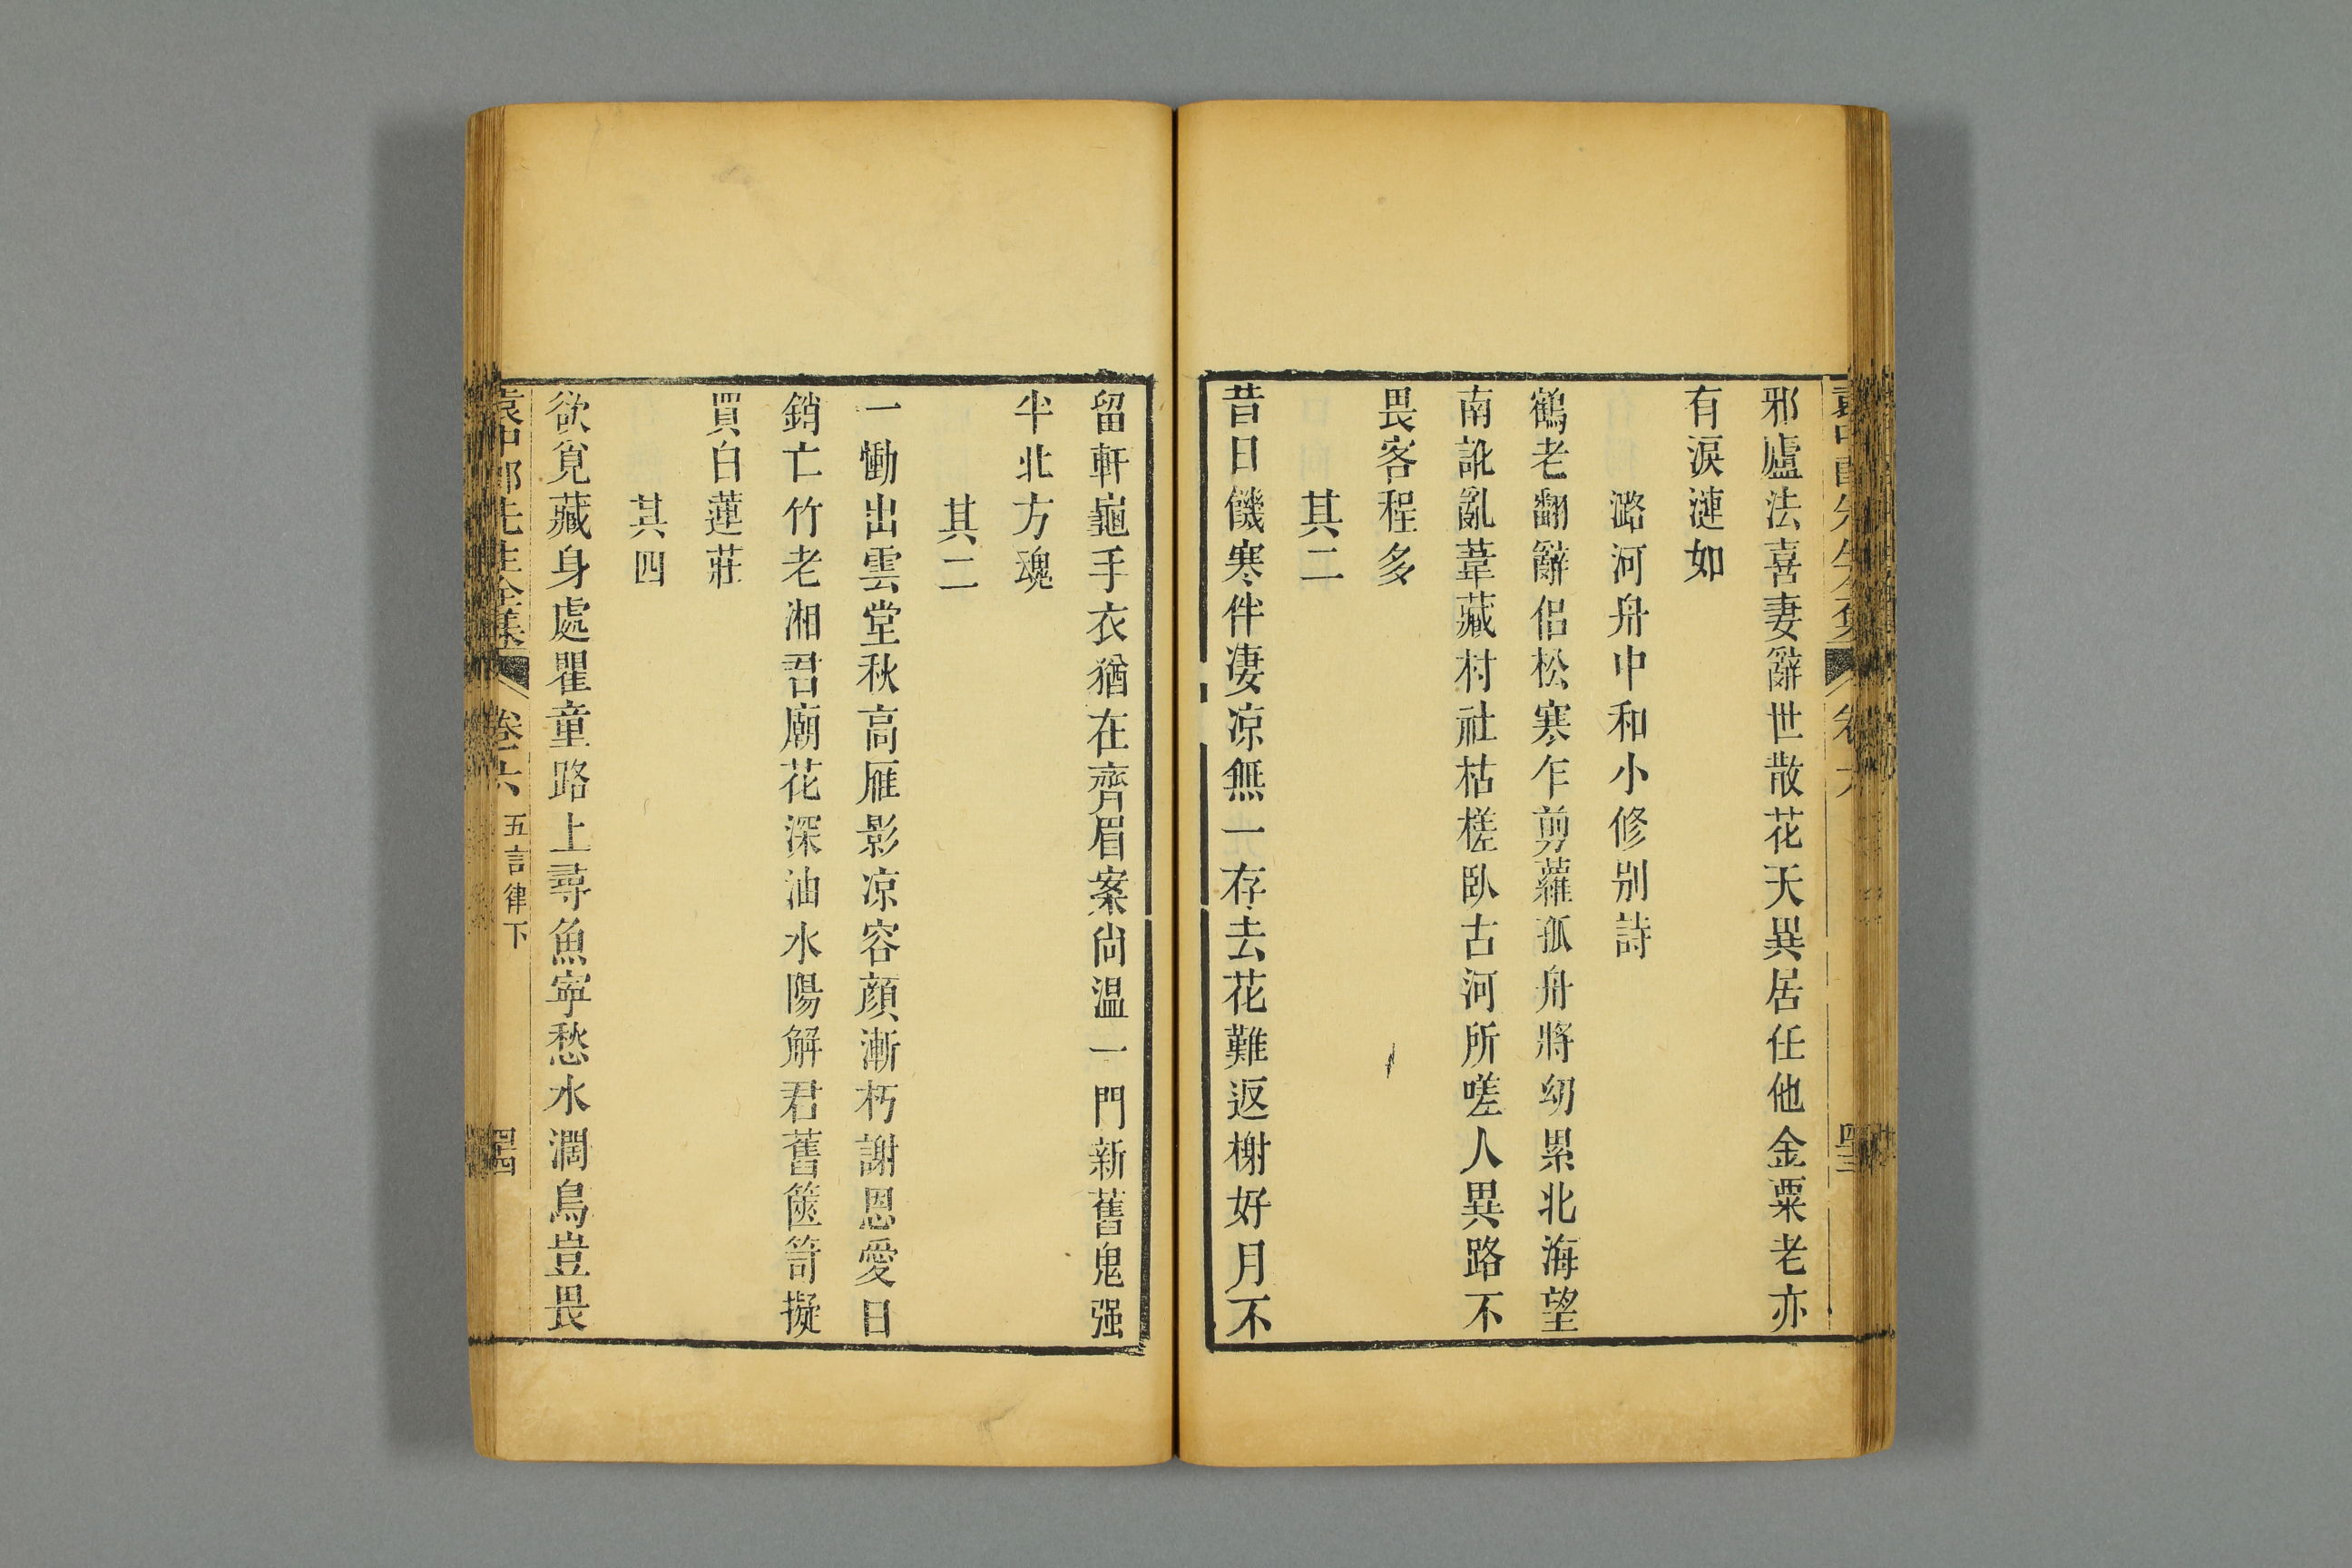 邪廬法喜妻辭世散花天異居任他金粟老亦
有淚漣如
潞河舟中和小修别詩
鶴老翻辭侣松寒乍剪蘿孤舟將幼累北海望
南訛亂葦藏村社枯槎臥古河所嗟人異路不
畏客程多
其二
昔日饑寒伴凄凉無一存去花難返樹好月不
留軒龜手衣猶在齊眉案尙温一門新舊鬼强
半北方魂
其二
一慟出雲堂秋高雁影凉容顔漸朽謝恩愛日
銷亡竹老湘君廟花深油水陽解君舊篋笥擬
買白蓮莊
其四
欲覓藏身處瞿童路上尋魚寧愁水濶鳥豈畏
袁中郎先生全集 卷六 五言律下 四四